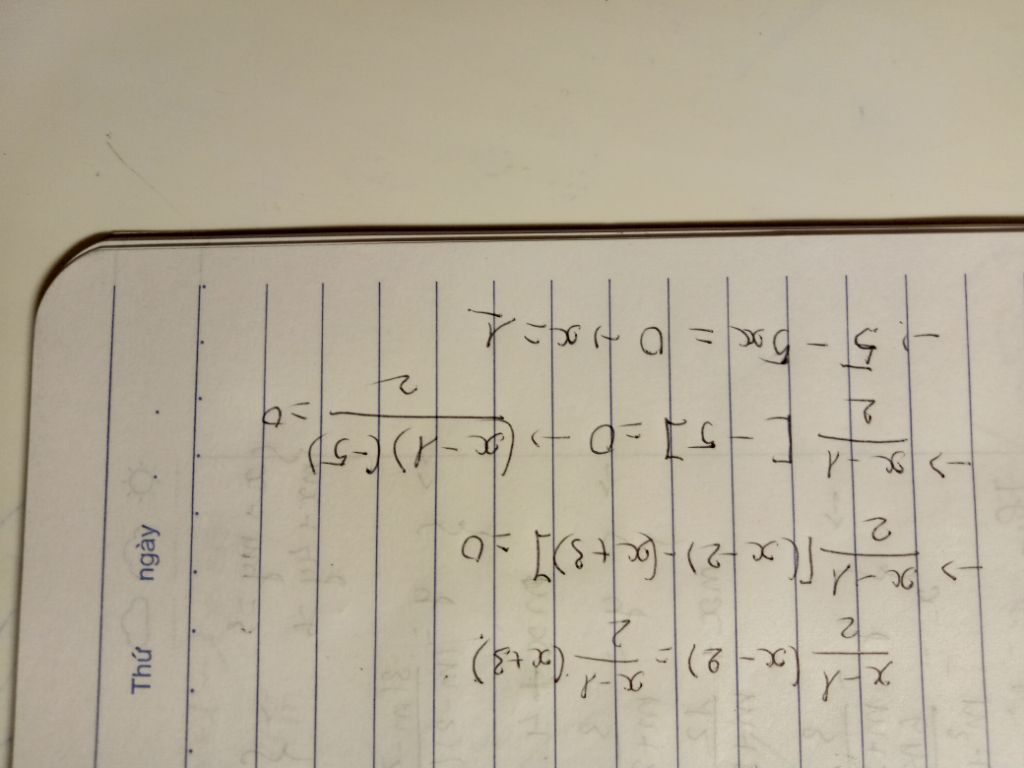 Thứ
ngày
x-1/2 (x-2) = x-1/2 (x+3)
→ x-1/2 [(x-2)-(x+3)] = 0
→ x-1/2 [-5] = 0 → (x-1)(-5)/2 = 0
→ 5 - 5x = 0 → x = 1